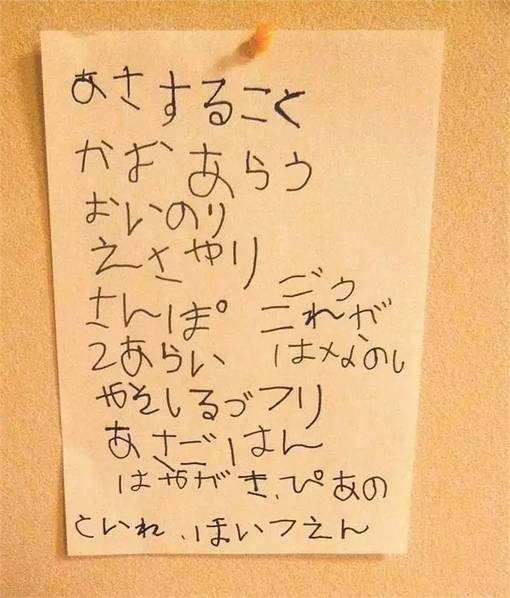 あさすること
かお あらう
おいのり
えさやり
さんぽ
2あらい
ごう
これが
やそしるづフリ
あさごはん
はやがき、ぴあの
といれ、ほいつえん